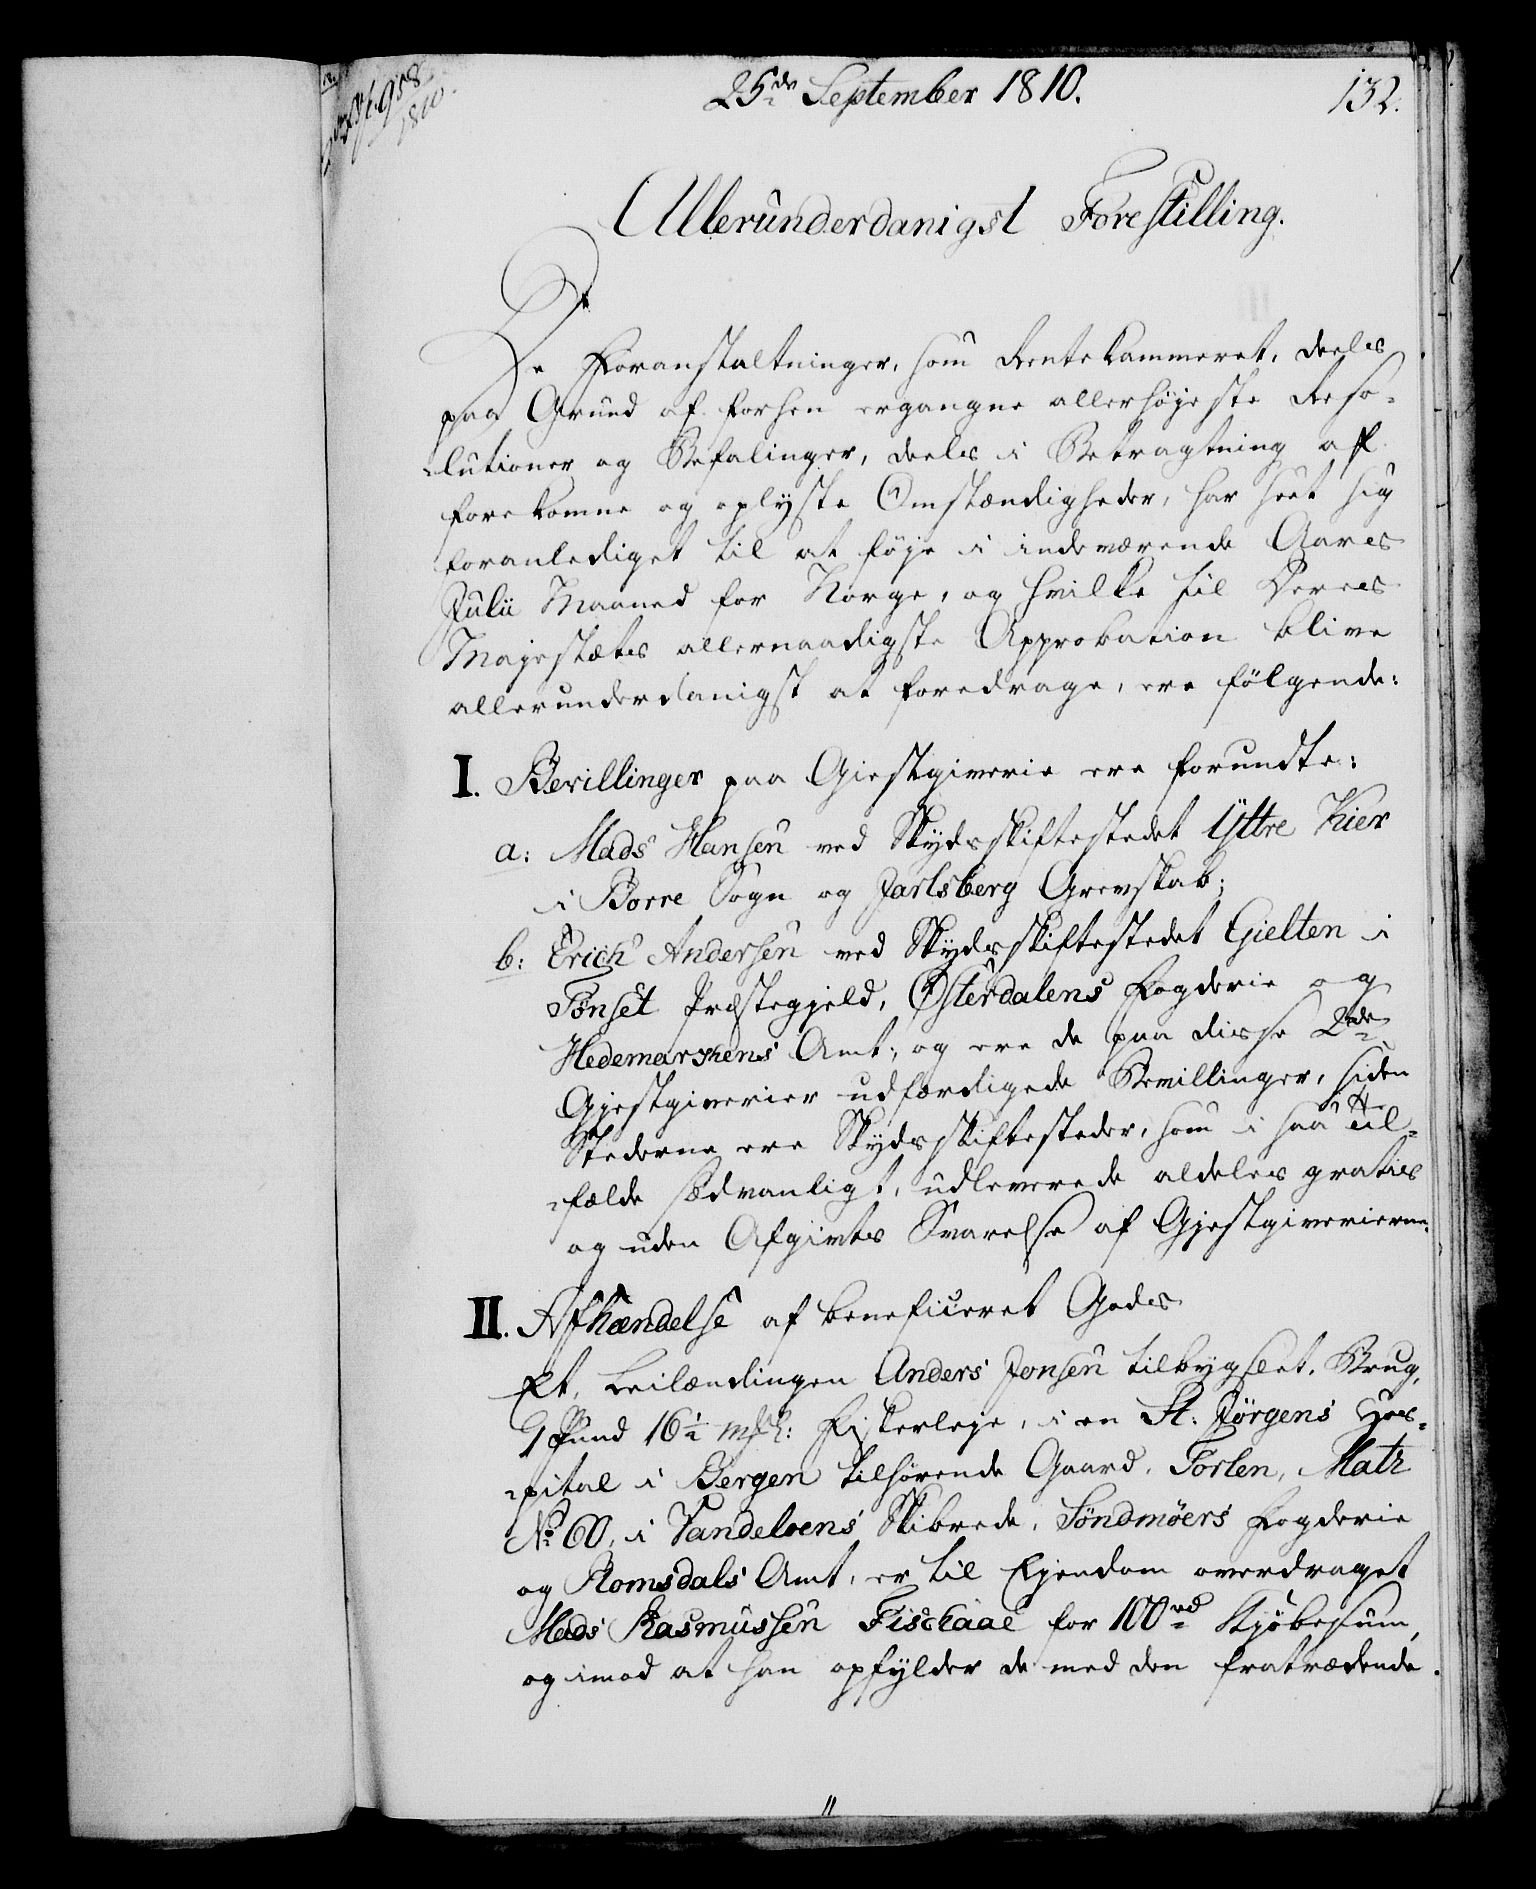 25de September 1810.
132.
958
1810.
Allerunderdanigst Forestilling.
De Foranstaltninger, som Rentekammeret, deels
paa Grund af forhen ergangne allerhøjeste Reso-
lutioner og Befalinger, deels i Betragtning af
forekomne og oplyste Omstændigheder, har seet sig
foranlediget til at føje i indeværende Aares
Julii Maaned for Norge, og hvilke til Deres
Majestæts allernaadigste Approbation blive
allerunderdanigst at foredrage, ere følgende:
I. Bevillinger paa Giestgiverie ere forundte:
a: Mads Hansen ved Skydsskiftestedet Yttre Kier
i Borre Sogn og Jarlsberg Grevskab;
b: Erich Andersen ved Skydsskiftestedet Gielten i
Tønset Præstegjeld, Østerdalens Fogderie og
Hedemarkens Amt; og ere de paa disse 2de
Gjestgiverier udfærdigede Bevillinger, siden
Stederne ere Skydsskiftesteder, som i saa Til-
fælde sædvanligt, udleverede aldeles gratis
og uden Afgivts Svarelse af Gjestgiverierne.
II. Afhændelse af beneficeret Gods
Et, Leilændingen Anders Jonsen tilbygslet, Brug,
1 Pund 16½ mfsk: Fiskerleje, i en St. Jørgens Hos-
pital i Bergen tilhørende Gaard, Torlen, Matr
No 60, i Vandelvens Skibrede, Søndmøers Fogderie
og Romsdals Amt, er til Ejendom overdraget
Mads Rasmussen Fischaae for 100rd Kjøbesum,
og imod at han opfylder de med den fratrædende